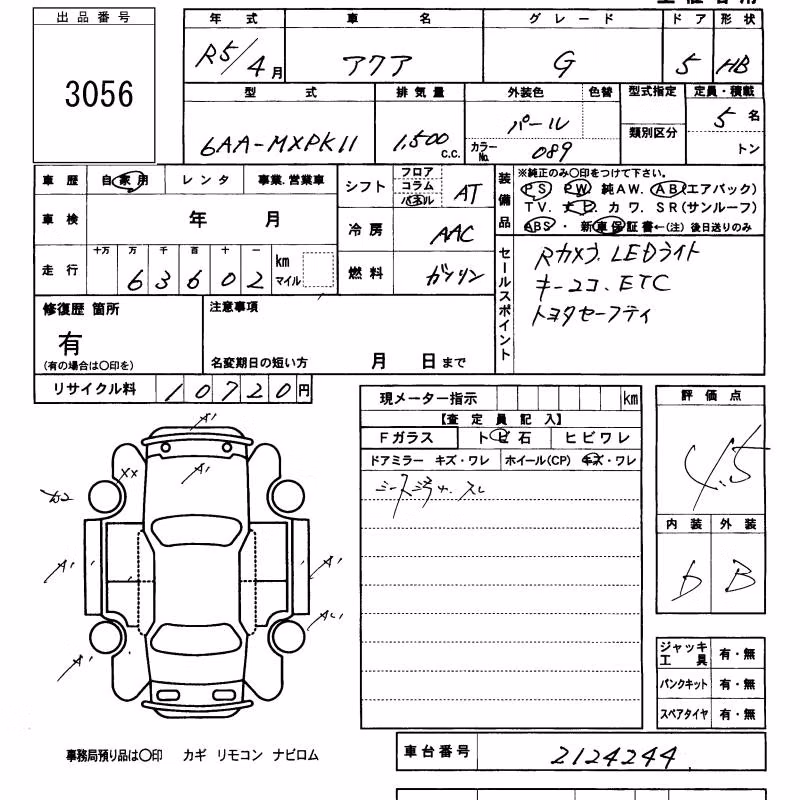 出品番号
3056
年式 車名 グレード ドア 形状
R5/4月 アクア G 5 HB
型式 排気量 外装色 色替 型式指定 定員・積載
6AA-MXPK11 1,500 C.C. パール 5名
カラーNo. 089 類別区分 トン
車歴 自家用 レンタ 事業.営業車
シフト フロア コラム パネル AT
車検 年 月
冷房 AAC
走行 十万 万 千 百 十 一
63602 km マイル
燃料 ガソリン
装備品 ※純正のみ〇印をつけて下さい。
PS PW 純AW. AB(エアバック)
TV. ナビ. カワ. SR(サンルーフ)
ABS・新車保証書←(注) 後日送りのみ
セールスポイント
Rカメラ. LEDライト
キー2コ. ETC
トヨタセーフティ
修復歴 箇所
有
(有の場合は〇印を)
注意事項
名変期日の短い方 月 日まで
リサイクル料 10720円
現メーター指示 km
【査定員記入】
Fガラス トビ石 ヒビワレ
ドアミラー キズ・ワレ ホイール(CP) キズ・ワレ
評価点
4.5
内装 外装
b B
A'
XX A'
A' A'
A'
ジャッキ工具 有・無
パンクキット 有・無
スペアタイヤ 有・無
事務局預り品は〇印 カギ リモコン ナビロム
車台番号 2124244